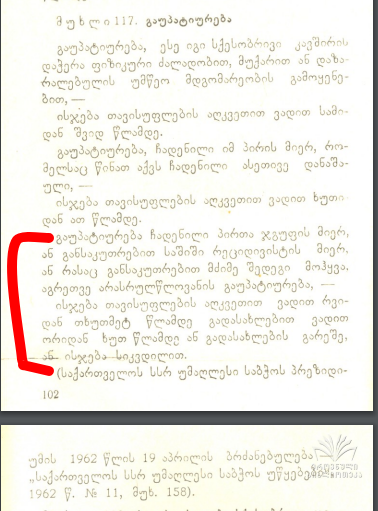 მ უ ხ ლ ი 117. გაუპატიურება
გაუპატიურება, ესე იგი სქესობრივი კავშირის
დაჭერა ფიზიკური ძალადობით, მუქარით ან დაზა-
რალებულის უმწეო მდგომარეობის გამოყენე-
ბით, —
ისჯება თავისუფლების აღკვეთით ვადით სამი-
დან შვიდ წლამდე.
გაუპატიურება, ჩადენილი იმ პირის მიერ, რო-
მელსაც წინათ აქვს ჩადენილი ასეთივე დანაშა-
ული, —
ისჯება თავისუფლების აღკვეთით ვადით ხუთი-
დან ათ წლამდე.
გაუპატიურება ჩადენილი პირთა ჯგუფის მიერ,
ან განსაკუთრებით საშიში რეციდივისტის მიერ,
ან რასაც განსაკუთრებით მძიმე შედეგი მოჰყვა,
აგრეთვე არასრულწლოვანის გაუპატიურება, —
ისჯება თავისუფლების აღკვეთით ვადით რვი-
დან თხუთმეტ წლამდე გადასახლებით ვადით
ორიდან ხუთ წლამდე ან გადასახლების გარეშე,
ან ისჯება სიკვდილით.
(საქართველოს სსრ უმაღლესი საბჭოს პრეზიდი-
102
უმის 1962 წლის 19 აპრილის ბრძანებულება
„საქართველოს სსრ უმაღლესი საბჭოს უწყებები“
1962 წ. № 11, მუხ. 158).